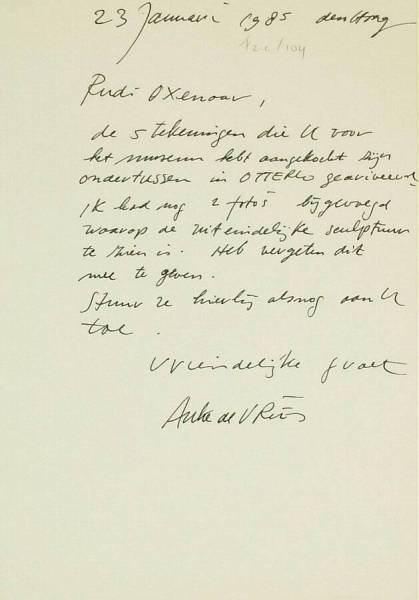 23 Januari 1985 den Haag
Rudi Oxenaar,
de 5 tekeningen die U voor
het museum hebt aangekocht zijn
ondertussen in OTTERLO gearriveerd
ik had nog 2 foto's bijgevoegd
waarop de uiteindelijke sculptuur
te zien is. Heb vergeten dit
mee te geven.
Stuur ze hierbij alsnog aan U
toe.
vriendelijke groet
Auke de Vries